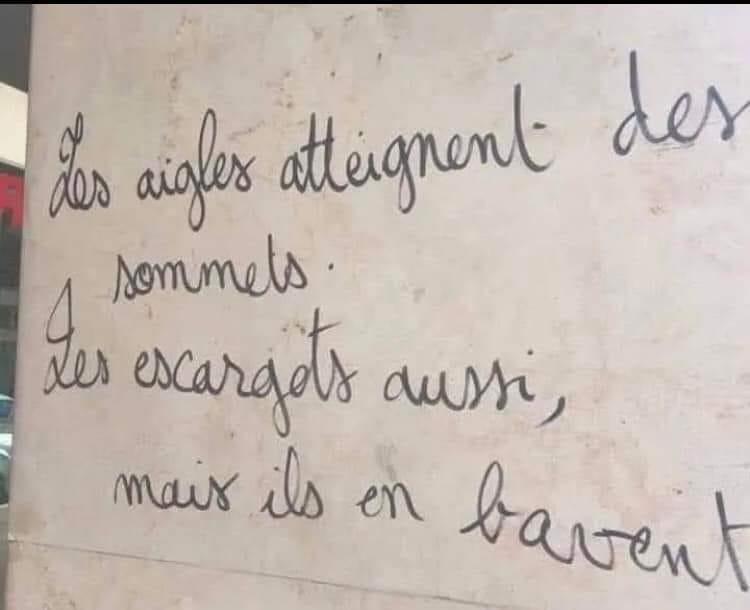 Les aigles atteignent des
sommets.
Les escargots aussi,
mais ils en bavent